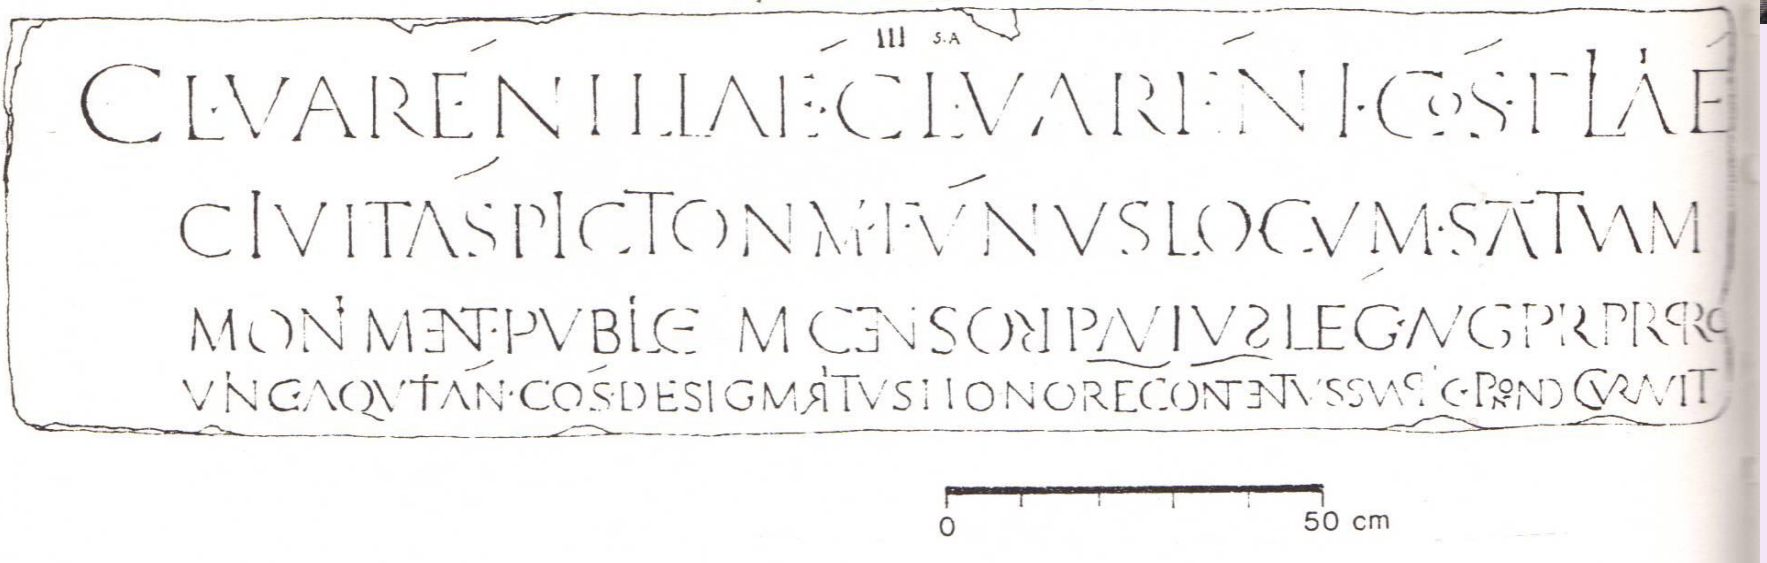 III S·A
CL·VARÉNILLAÉ·CL·VARÉNI·COS·FILAÉ
CIVITAS PICTONVM·FVNVS LOCVM·STATVAM
MONIMENT·PVBLICE M CENSOR PAVIVS LEG·AVG PR PR PRO
VINC·AQVITAN·COS·DESIG MARITVS HONORE CONTENTVS SVA PEC·PONEND CVRAVIT
0 50 cm